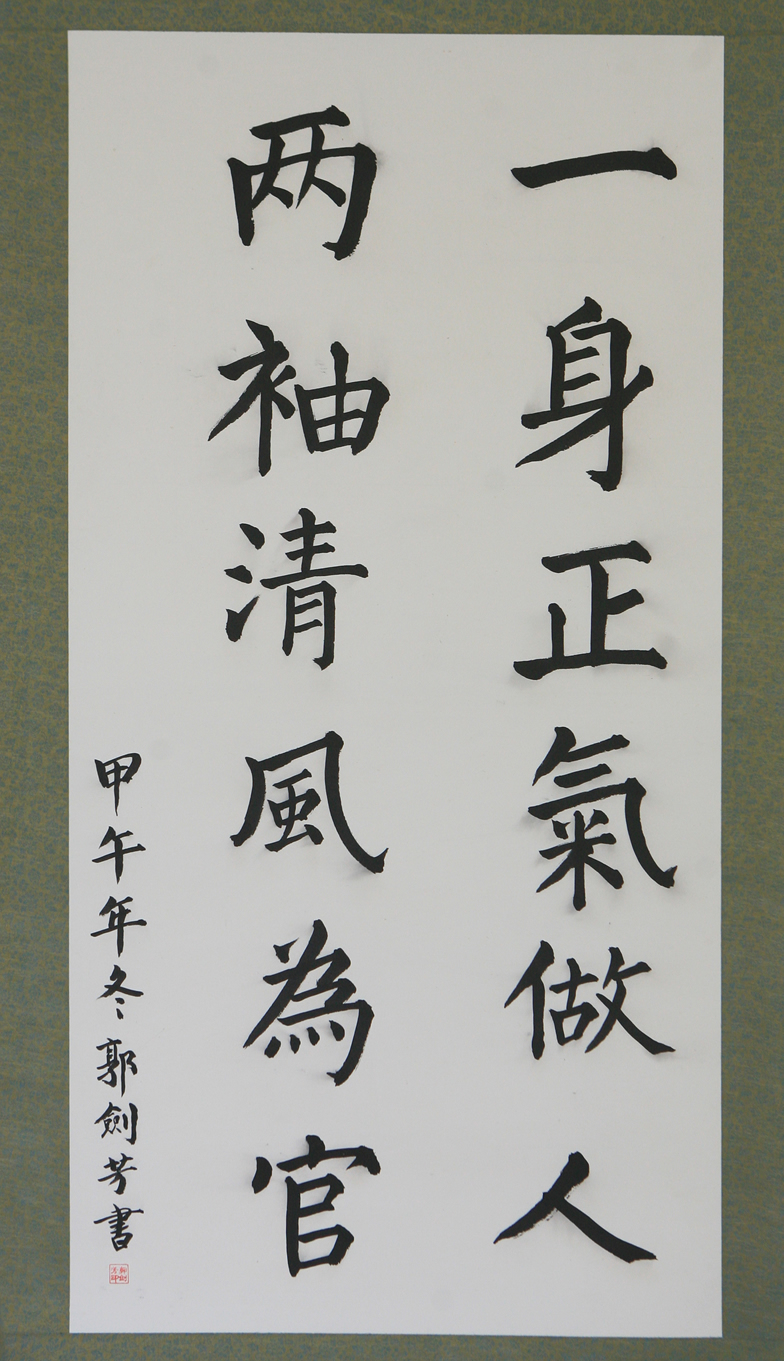 一身正氣做人
两袖清風為官
甲午年冬郭劍芳書